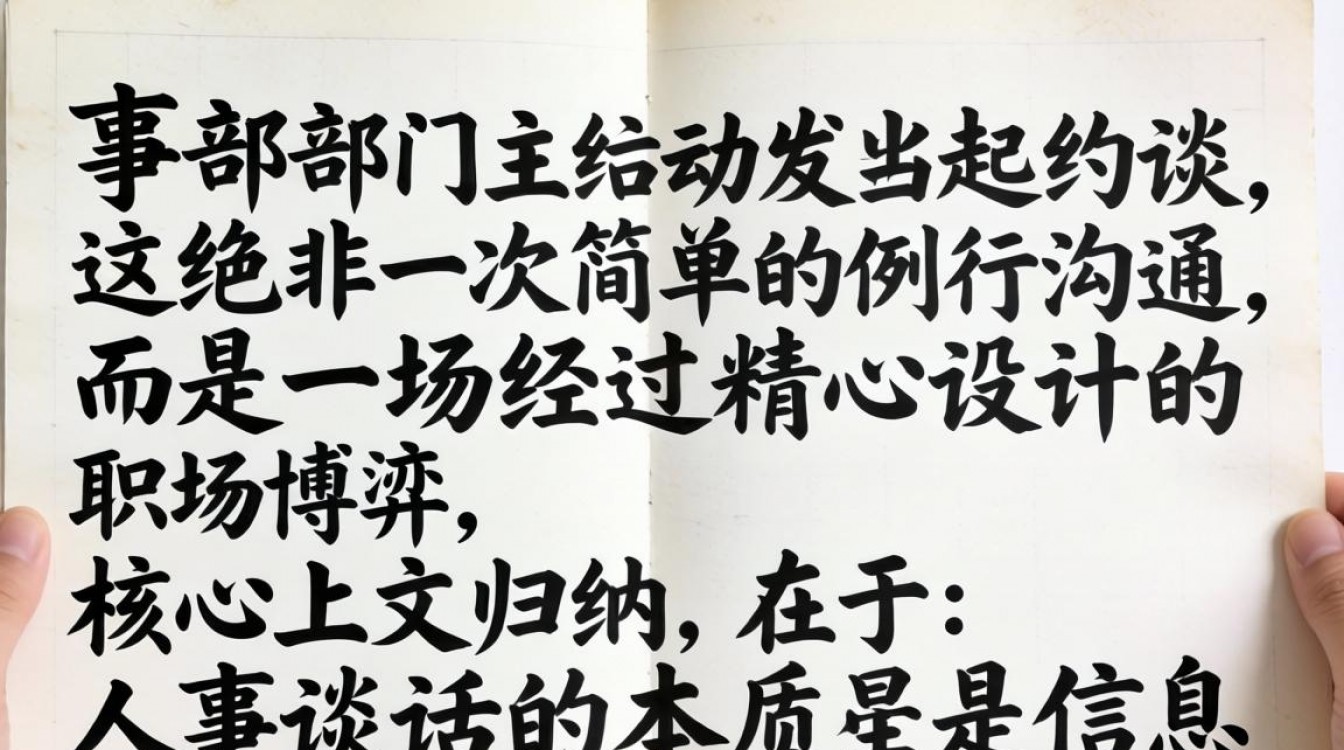 事部部门主给动发当起约谈，
这绝非一次简单的例行沟通，
而是一场经过精心设计的
职场博弈，
核心上文归纳，在于：
人事谈话的本质是是信息